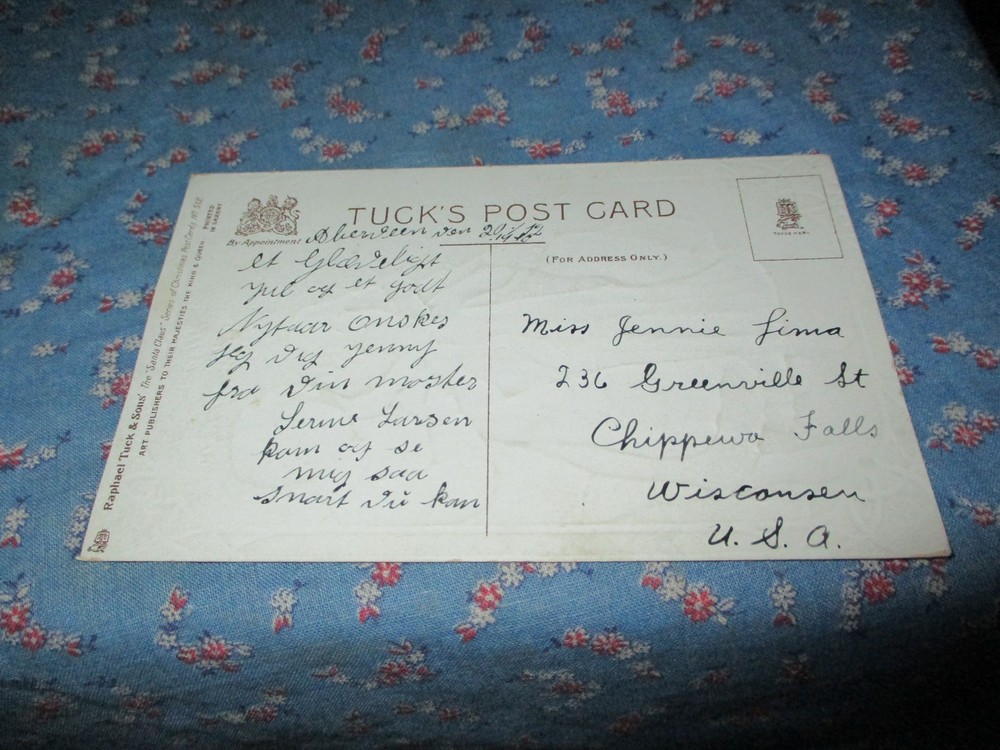 TUCK'S POST CARD
By Appointment
(FOR ADDRESS ONLY.)
Aberdeen den
et Glædeligt
Jul og et godt
Nytaar Onskes
Jeg dig Jenny
fra Din moster
Larsen
kom og se
mig saa
snart du kan
Miss Jennie Lima
236 Greenville St
Chippewa Falls
Wisconsen
U. S. A.
Raphael Tuck & Sons' the "Santa Claus" Series of Christmas Post Cards No.
ART PUBLISHERS TO THEIR MAJESTIES THE KING & QUEEN
PRINTED
IN SAXONY
TRADE MARK